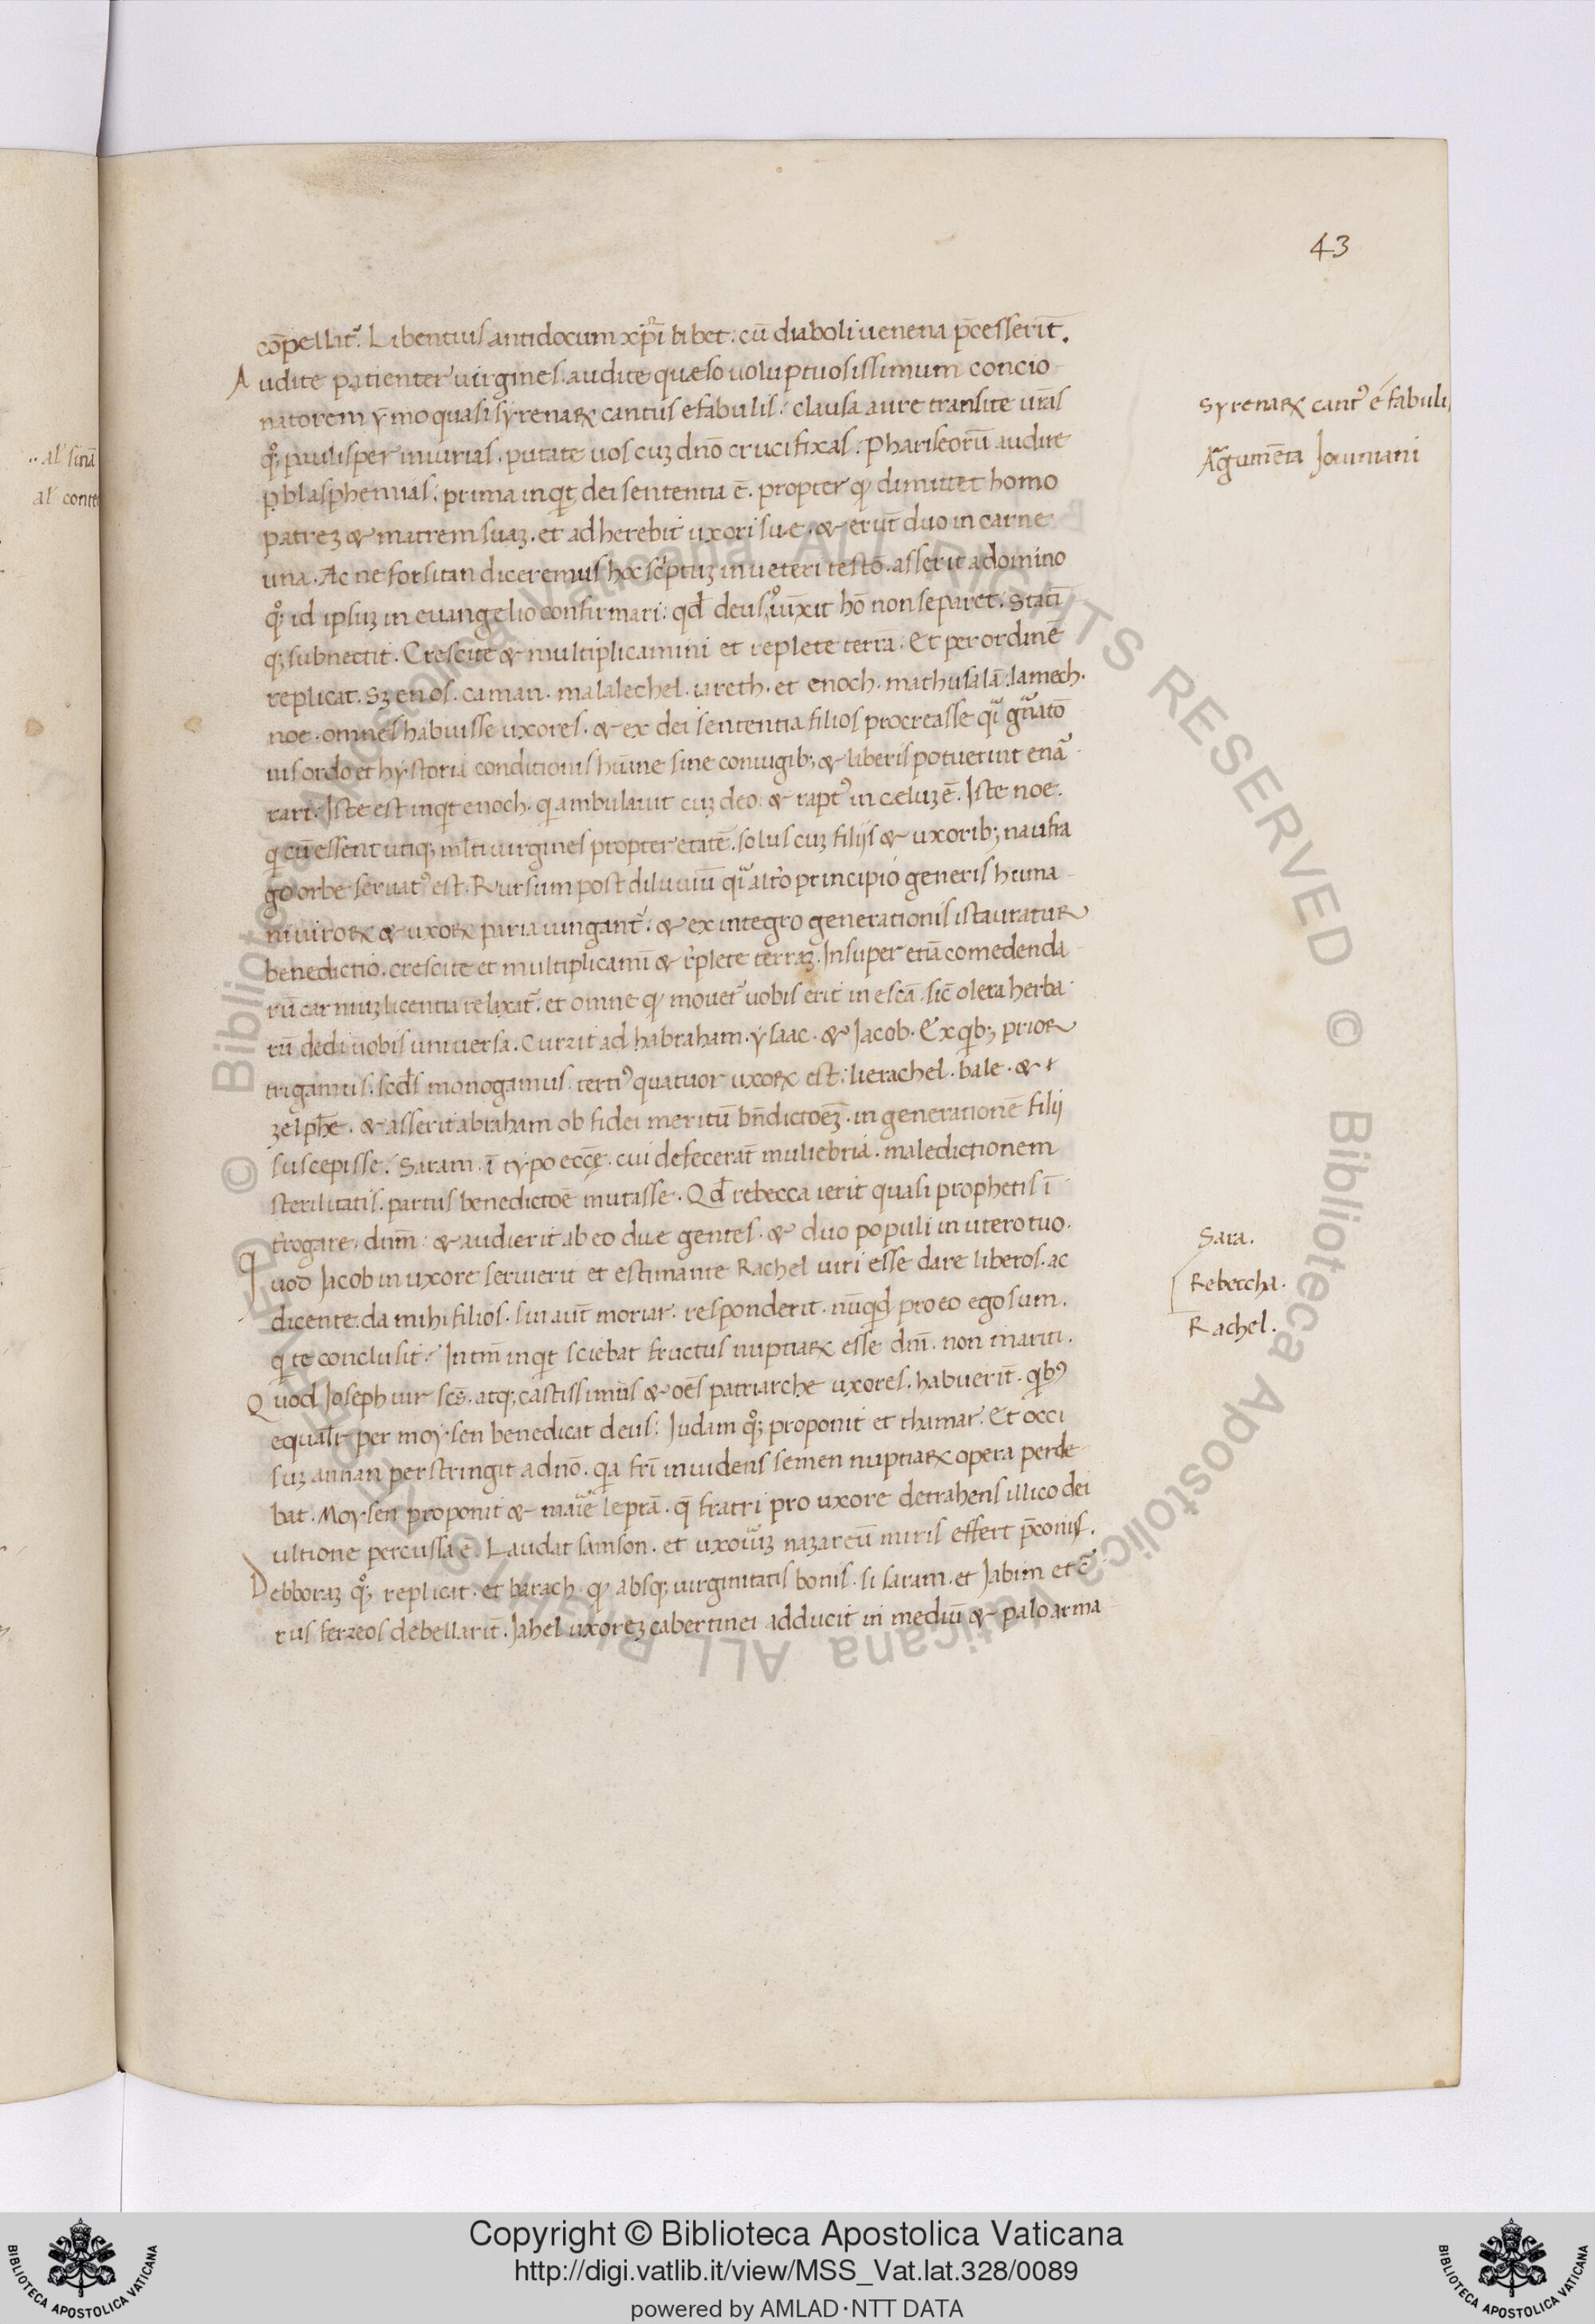 43
cōpellit᷑. Libentius antidocum xp̄i bibet: cū diaboli uenena p̄cesserit̄.
Audite patienter uirgines. audite quæso uoluptuosissimum concio
natorem ẏmo quasi syrenaꝝ cantus e fabulis: clausa aure transite ur̄as
qͦꝫ paulisper iniurias. putate uos cuꝫ dn̄o crucifixas: Phariseorū audite
ꝑ blasphemias: prima inqt dei sententia ē. propter qđ dimittet homo
patreꝫ & matrem suaꝫ. et adherebit uxori suæ. & erūt duo in carne
una. Ac ne forsitan diceremus hoc sc̄ptuꝫ in ueteri testō. asserit a domino
qͦꝫ id ipsuꝫ in euangelio confirmari: qđ deus iūxit hō non separet. Statī
qꝫ subnectit. Crescite & multiplicamini et replete terrā. Et per ordinē
replicat. sꝫ enos. cainan. malalechel. iareth. et enoch. mathusalā. lamech.
noe. omnes habuisse uxores. & ex dei sententia filios procreasse qͣi gn̄atō
nis ordo et hystoria conditionis hūane sine coniugibꝫ & liberis potuerint enā
rari. Iste est inqt enoch. q ambulauit cuꝫ deo. & rapt᷒ in cæluꝫ ē. Iste noe.
q cū essent utiqꝫ ml̄ti uirgines propter etatē. solus cuꝫ filijs & uxoribꝫ naufra
go orbe seruat᷒ est. Rursum post diluuiū qͣi alt̄o principio generis huma
ni uiroꝝ & uxoꝝ paria iungant᷑. & ex integro generationis istauratur
benedictio. crescite et multiplicami̅ & r̄plete terraꝫ. Insuper etiā comedenda
rū carniuꝫ licentia relaxat᷑. et omne qđ mouet᷑ uobis erit in escā. sic̄ olera herba
rū dedi uobis uniuersa. Currit ad habraham. ysaac. & Jacob. Ex qbꝫ prior
trigamus. sc̄ds monogamus. terti᷒ quatuor uxoꝝ est: lie rachel. bale. &
zelphe. & asserit abraham ob fidei meritū bn̄dictōeꝫ. in generationē filij
suscepisse. Saram. ī typo ecc̄ę. cui defecerāt muliebria. maledictionem
sterilitatis. partus benedictōe mutasse. Qđ rebecca ierit quasi prophetis ī
t̄rogare. dn̄m: & audierit ab eo due gentes. & duo populi in utero tuo.
Quod Jacob in uxore seruierit et estimante Rachel uiri esse dare liberos. ac
dicente. da mihi filios. sin aut̄ moriar. responderit. nūqd pro eo ego sum.
q te conclusit: In tm̄ inqt sciebat fructus nuptiaꝝ esse dn̄i. non mariti.
Quod Joseph uir scs̄. atqꝫ castissimus & oēs patriarche uxores. habuerit̄. qb᷒
equalr̄ per moysen benedicat deus: Judam qͦꝫ proponit et thamar. Et occi
suꝫ aunan perstringit a dn̄o. qa fr̄i inuidens semen nuptiaꝝ opera perde
bat. Moysen proponit & marie leprā. q̄ fratri pro uxore detrahens illico dei
ultione percussa ē. Laudat samson. et uxoriuꝫ nazareū miris effert p̄conijs.
Debboraꝫ qͦꝫ replicat. et barach. qđ absqꝫ uirginitatis bonis. sisaram. et Jabim et c̄
rus ferreos debellarit̄. Jahel uxoreꝫ cabertinei adducit in mediū & palo arma
Syrenaꝝ cant᷒ e fabuli
Argumēta Jouiniani
Sara.
Rebeccha.
Rachel.
al' sinā
al' conte
© Biblioteca Apostolica Vaticana ALL RIGHTS RESERVED © Biblioteca Apostolica Vaticana ALL RIGHTS RESERVED
Copyright © Biblioteca Apostolica Vaticana
http://digi.vatlib.it/view/MSS_Vat.lat.328/0089
powered by AMLAD·NTT DATA
BIBLIOTECA APOSTOLICA VATICANA
BIBLIOTECA APOSTOLICA VATICANA